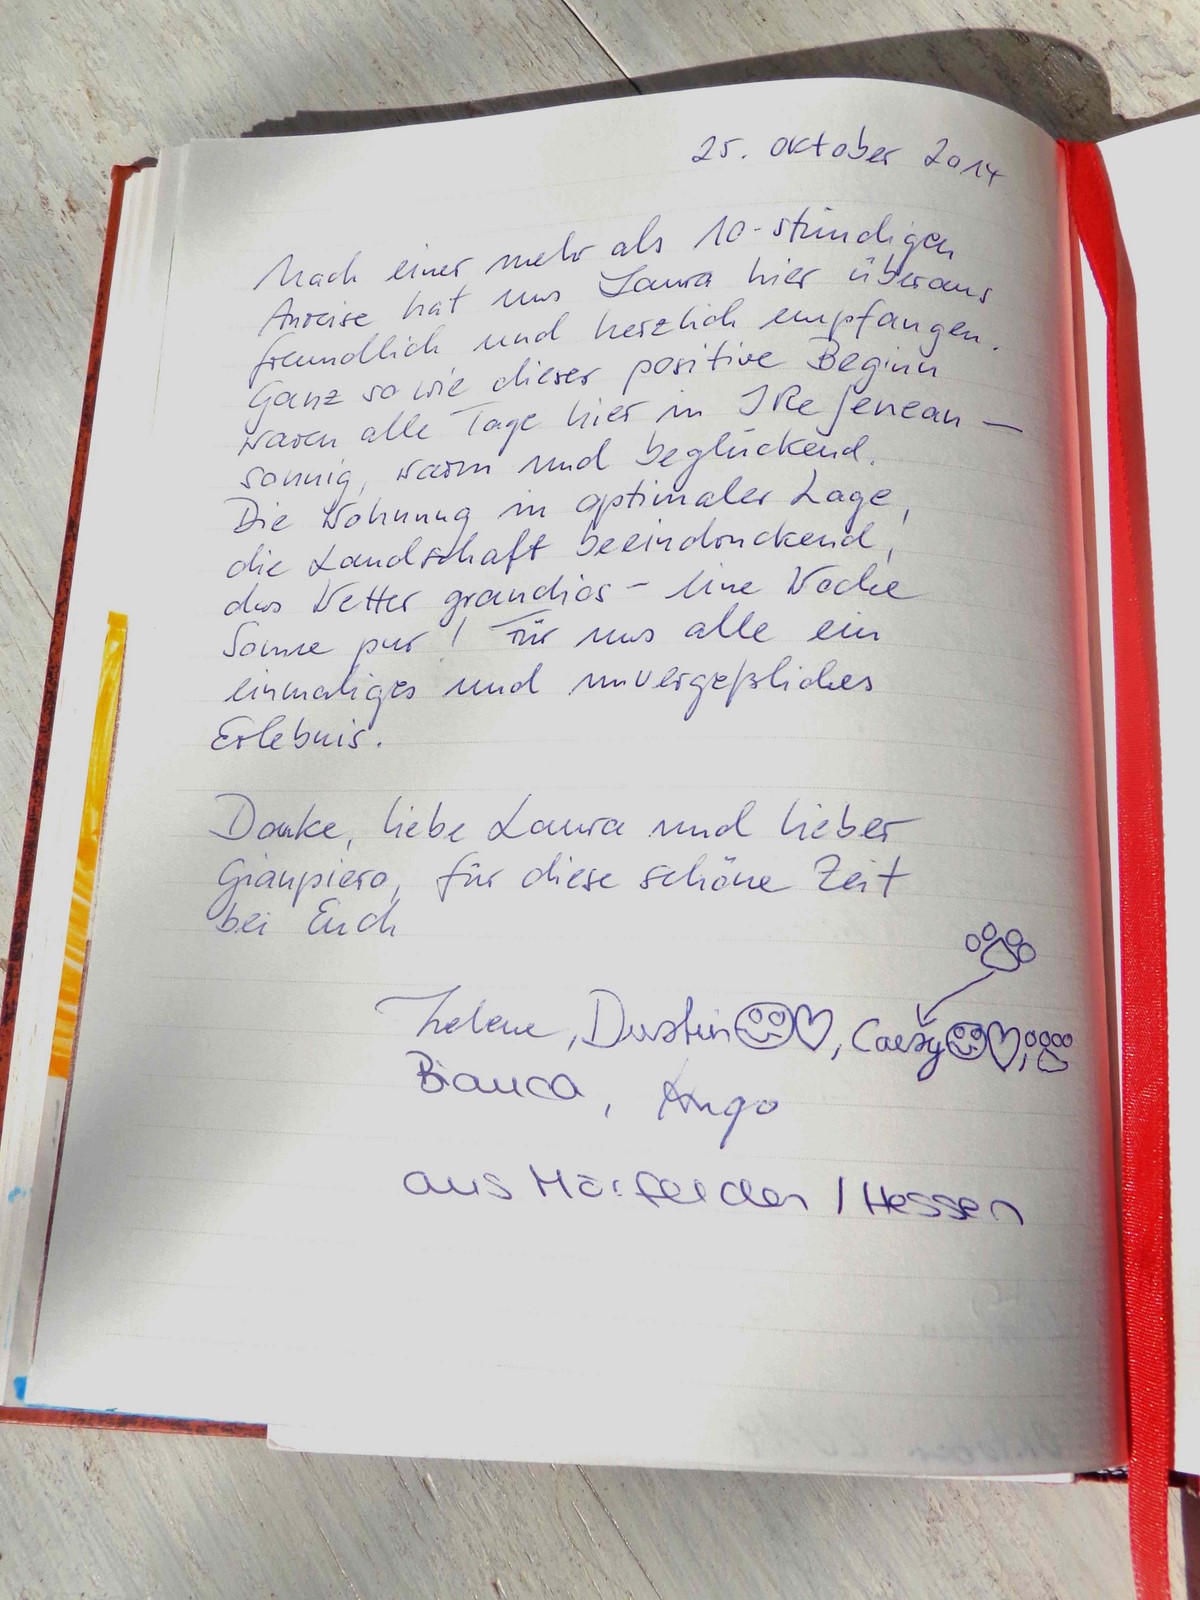 25. Oktober 2014
Nach einer mehr als 10-stündigen
Anreise hat uns Laura hier überaus
freundlich und herzlich empfangen.
Ganz so wie dieser positive Beginn
waren alle Tage hier in —
sonnig, warm und beglückend.
Die Wohnung in optimaler Lage,
die Landschaft beeindruckend,
das Wetter grandios – eine Woche
Sonne pur! Für uns alle ein
einmaliges und unvergeßliches
Erlebnis.
Danke, liebe Laura und lieber
Gianpiero, für diese schöne Zeit
bei Euch
Helene, Dustin, 
Bianca, Ingo
aus Mörfelden / Hessen